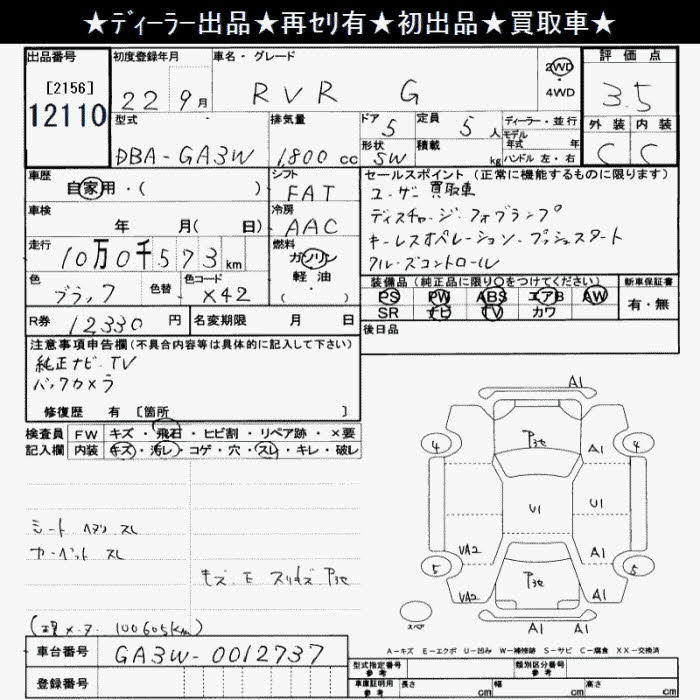 ★ﾃﾞｨｰﾗｰ出品★再ｾﾘ有★初出品★買取車★
出品番号
[2156]
12110
初度登録年月
22 9月
車名・グレード
RVR G
2WD
・
4WD
評価点
3.5
型式
DBA-GA3W
排気量
1,800 cc
ドア
5
定員
5 人
形状
SW
積載
kg
ディーラー・並行
モデル
年式 年
ハンドル 左・右
外装 内装
C C
車歴
自家用・( )
シフト
FAT
車検
年 月( 日)
冷房
AAC
走行
10万0千573km
燃料
ガソリン
軽・油
( )
色
ブラック
色替
色コード
X42
R券
12,330 円
名変期限 月 日
セールスポイント(正常に機能するものに限ります)
ユーザー買取車
ディスチャージ・フォグランプ
キーレスオペレーション・プッシュスタート
クルーズコントロール
装備品(純正品に限り○をつけてください)
PS PW ABS エアB AW
SR ナビ TV カワ
新車保証書
有・無
後日品
注意事項申告欄(不具合内容等は具体的に記入して下さい)
純正ナビ・TV
バックカメラ
修復歴 有 [箇所 ]
検査員 FW キズ・飛石・ヒビ割・リペア跡・×要
記入欄 内装 キズ・汚レ・コゲ・穴・スレ・キレ・破レ
シート ヘタリ スレ
カーペット スレ
キズ・E スリキズ P3セ
(現メーター 100605km)
A1
P3セ
4 4
A1
U1 U1
VA2 A1
5 P3セ 5
VA2 A1
スペア
A1 A1
A-キズ E-エクボ U-凹み W-補修跡 S-サビ C-腐食 XX-交換済
車台番号
GA3W-0012737
登録番号
型式指定番号
参考
類別区分番号
参考
車庫証明用
参考
長さ cm 幅 cm 高さ cm